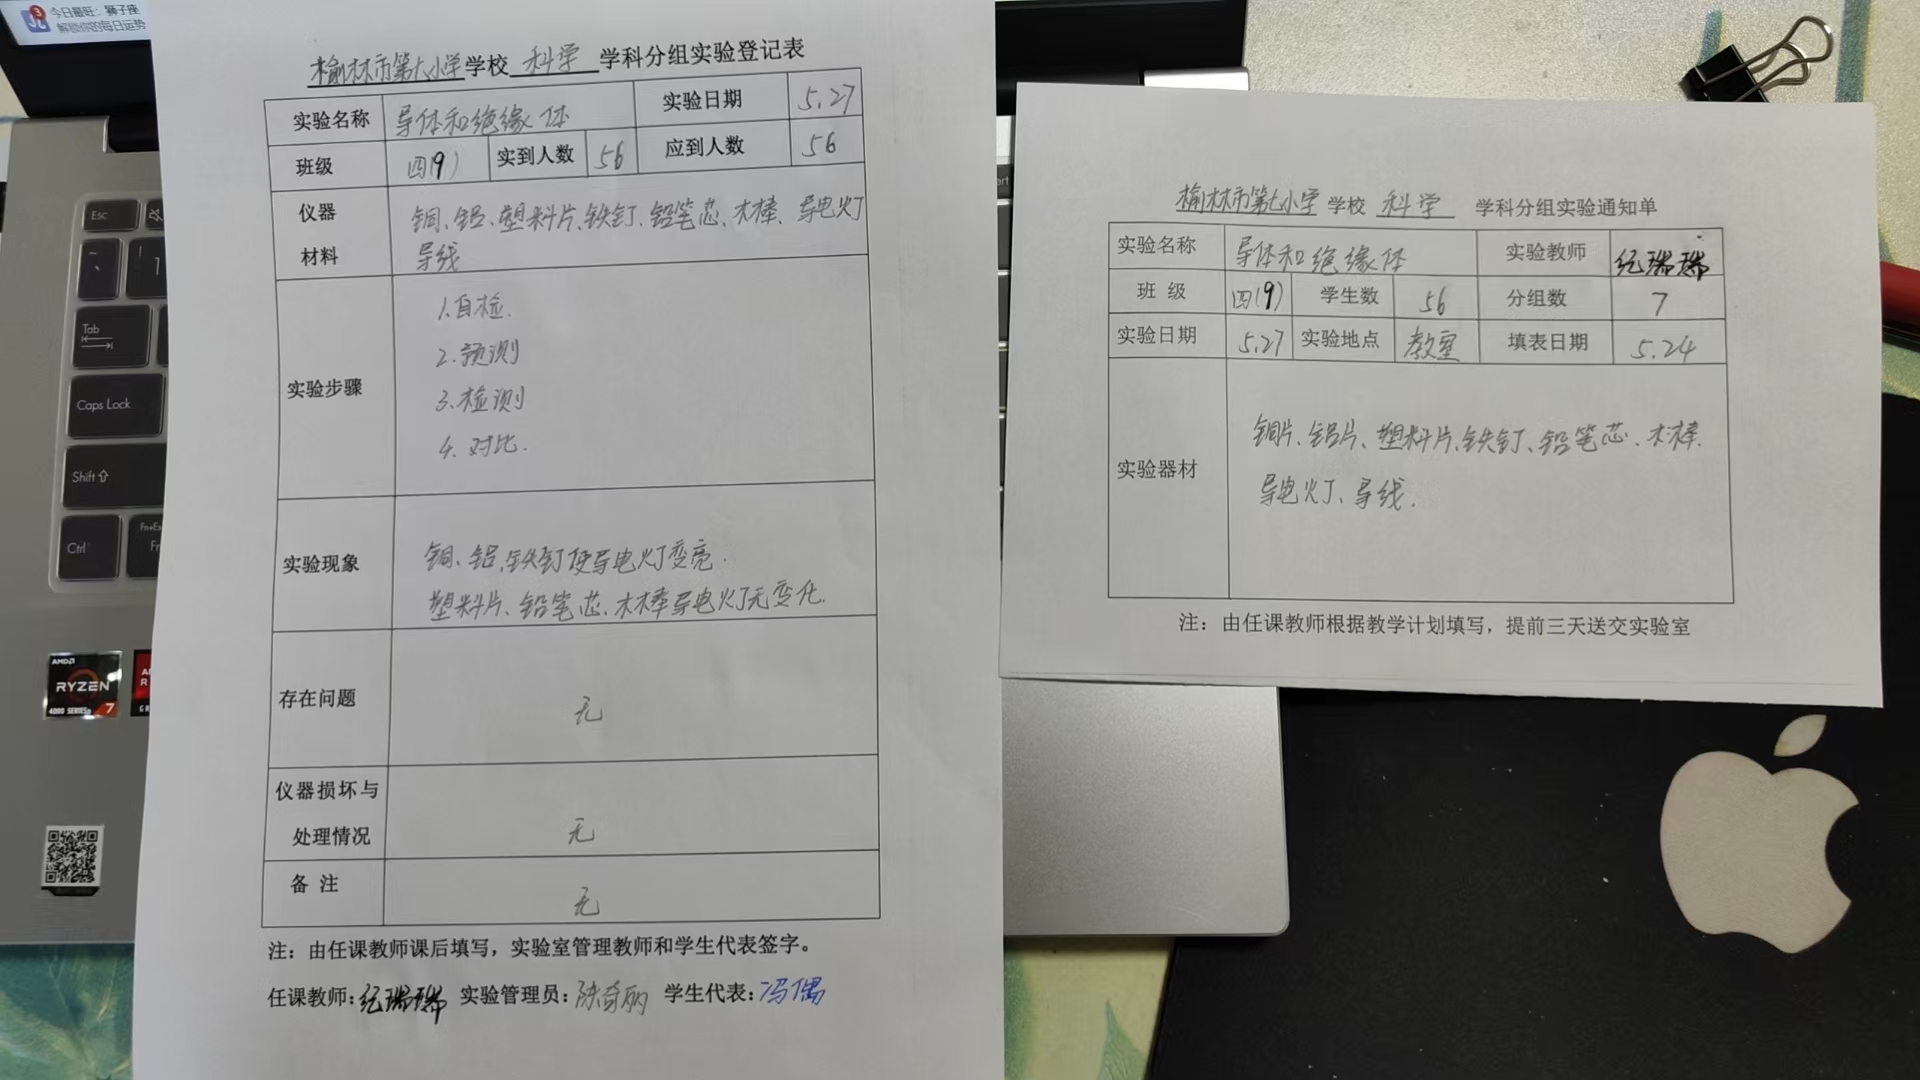 今日最旺：狮子座
解锁你的每日运势
榆林市第七小学学校 科学 学科分组实验登记表
实验名称 导体和绝缘体 实验日期 5.27
班级 四(9) 实到人数 56 应到人数 56
仪器材料 铜、铝、塑料片、铁钉、铅笔芯、木棒、导电灯
导线
实验步骤
1.自检.
2.预测
3.检测
4.对比.
实验现象
铜、铝、铁钉使导电灯变亮.
塑料片、铅笔芯、木棒导电灯无变化.
存在问题 无
仪器损坏与
处理情况 无
备 注 无
注：由任课教师课后填写，实验室管理教师和学生代表签字。
任课教师：纪瑞瑞 实验管理员：陈奇丽 学生代表：冯偶
榆林市第七小学 学校 科学 学科分组实验通知单
实验名称 导体和绝缘体 实验教师 纪瑞瑞
班 级 四(9) 学生数 56 分组数 7
实验日期 5.27 实验地点 教室 填表日期 5.24
实验器材
铜片、铝片、塑料片、铁钉、铅笔芯、木棒.
导电灯、导线.
注：由任课教师根据教学计划填写，提前三天送交实验室
Esc
Tab
Caps Lock
Shift
Ctrl
Fn
AMD
RYZEN
4000 SERIES 7